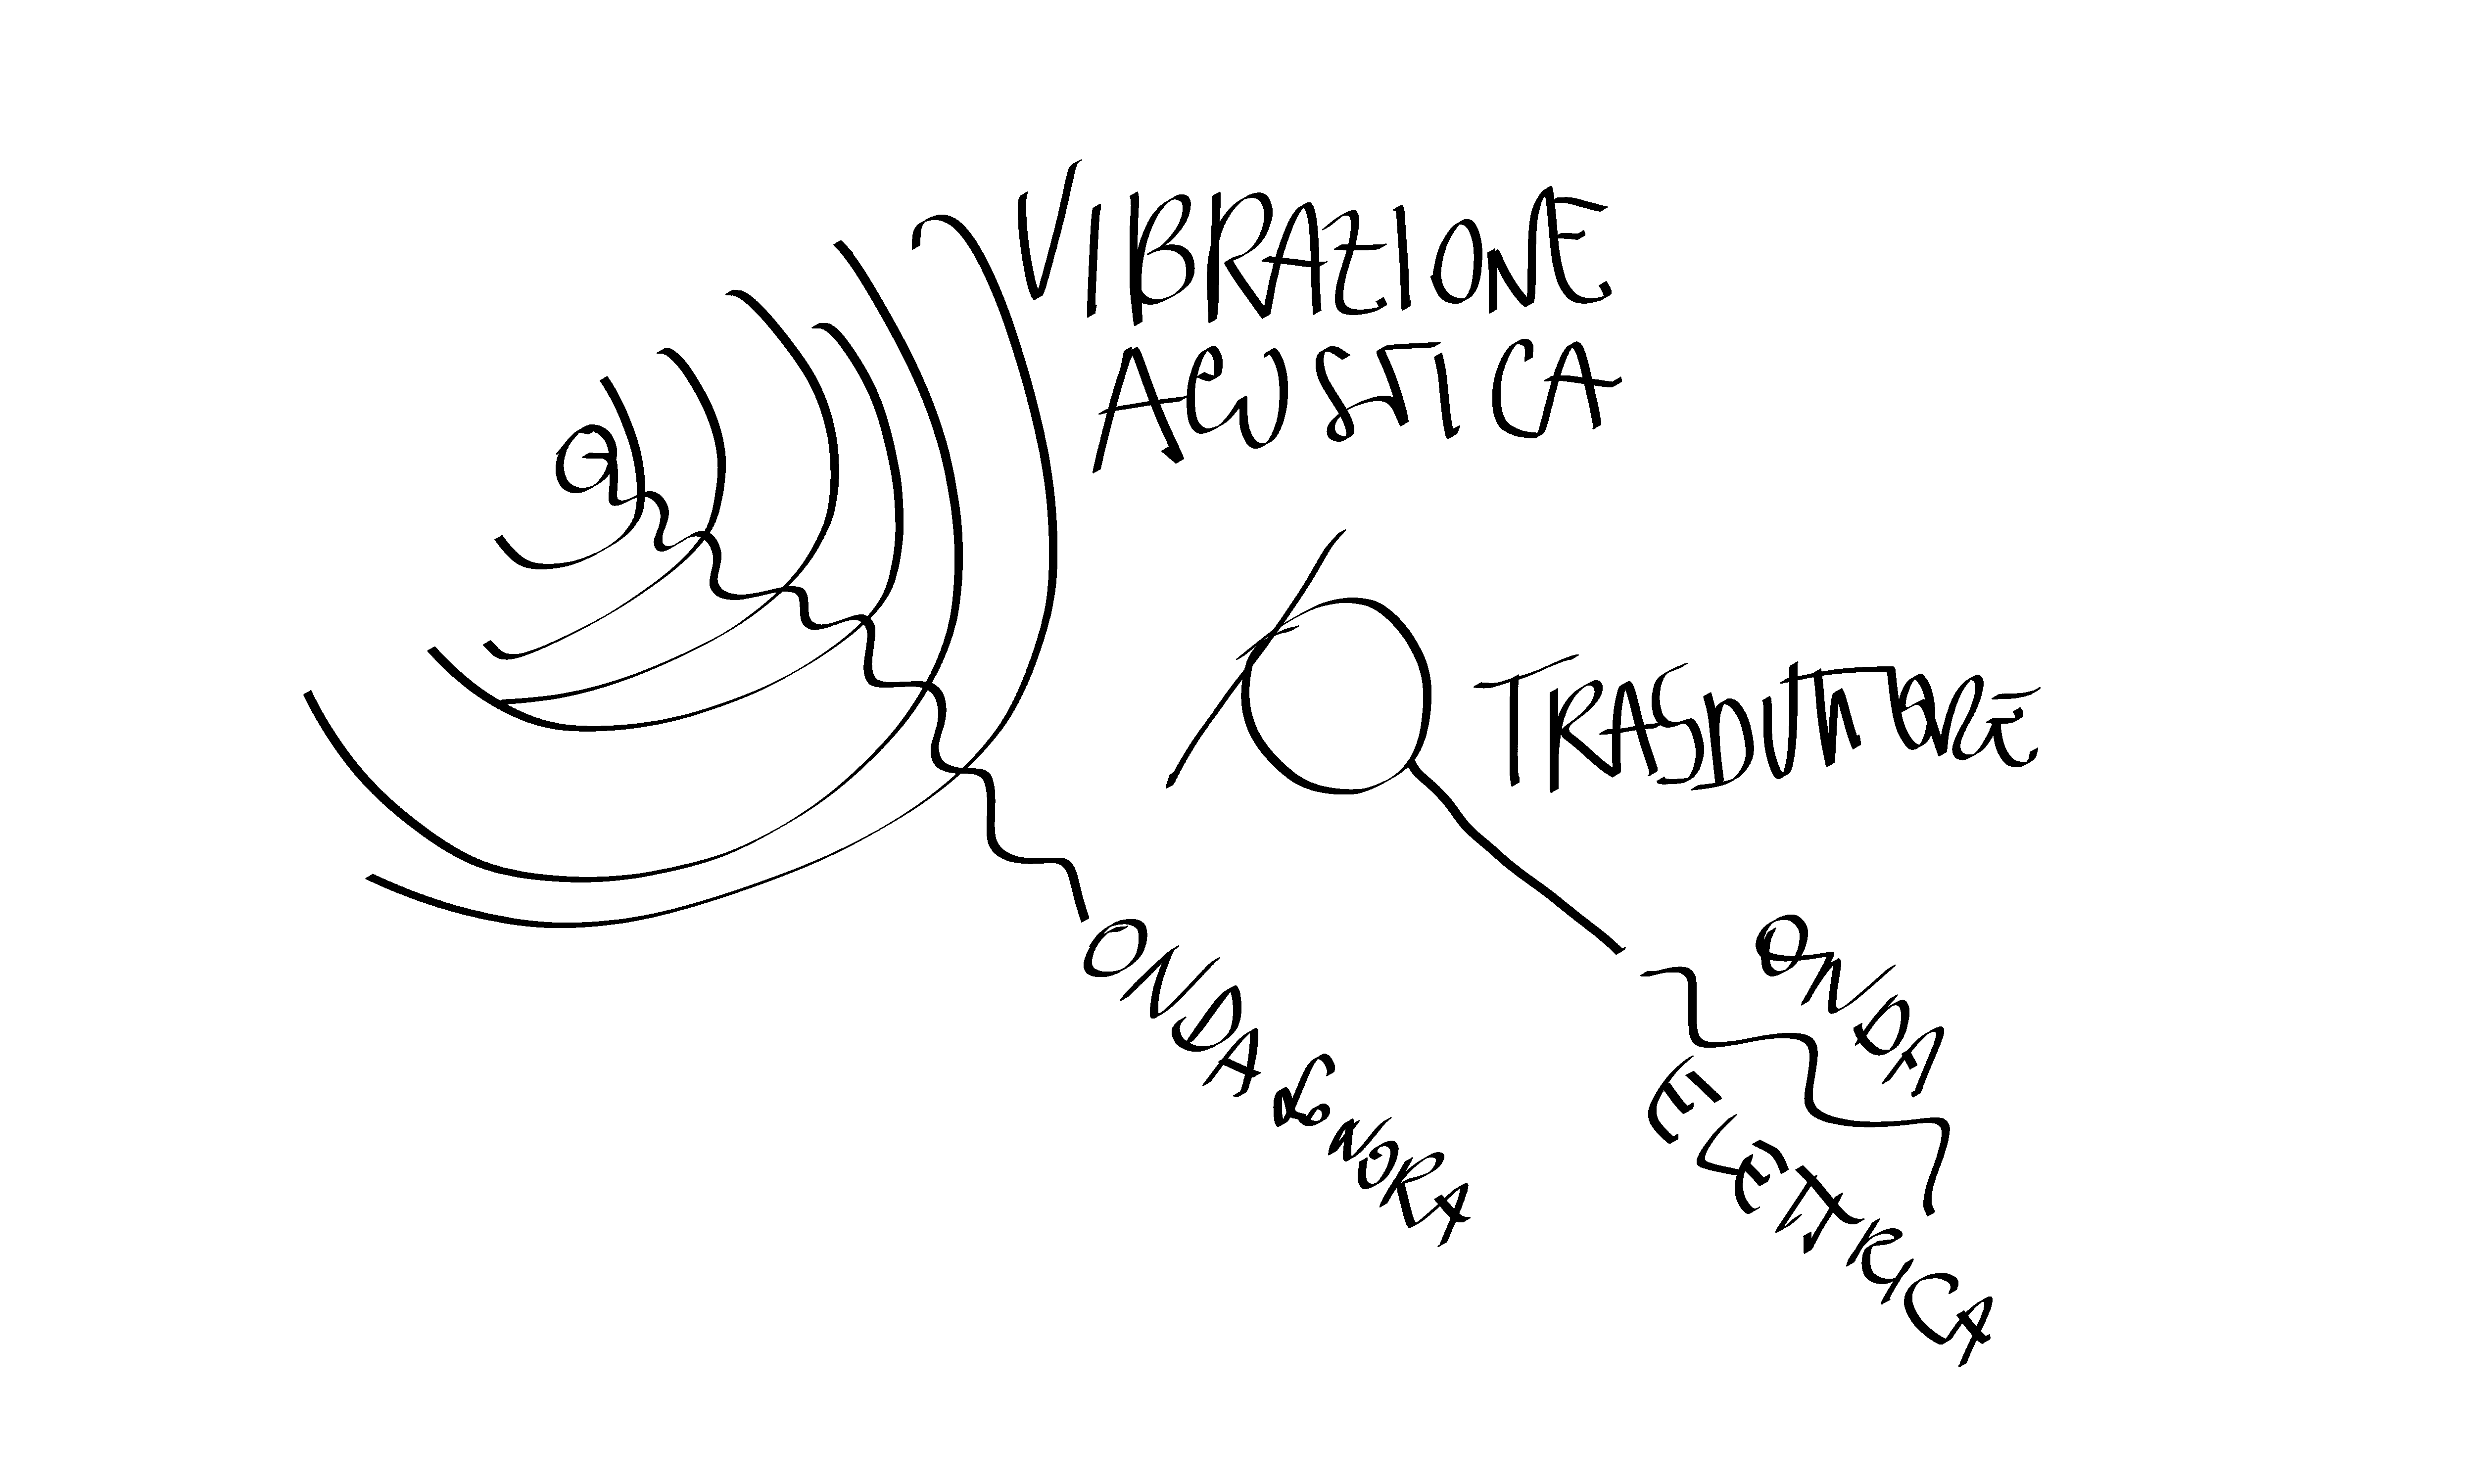 VIBRAZIONE
ACUSTICA
TRASDUTTORE
ONDA SONORA
ONDA
ELETTRICA